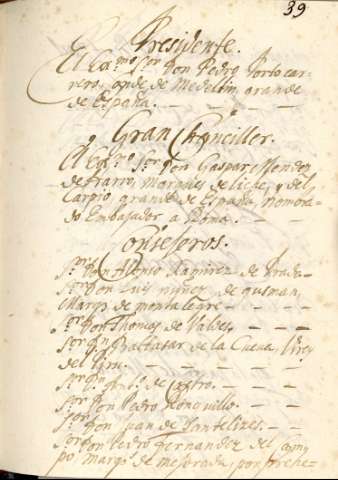 39
Presidente.
El Ex.mo S.or Don Pedro Portocar-
rero, Conde de Medellin, grande
de España.
Gran Chanciller.
El Ex.mo S.or Don Gaspar Mendez
de Haro, Marques de Liche, y del
Carpio, grande de España, nombra-
do Embajador a Roma.
Conseseros.
S.or Don Alonso Ramirez de Prado
S.or Don Luis nuñez de gusman,
Marqs de montalegre
S.or Don Thomas de Valdes,
S.or Dn Balthasar de la Cueva, Virey
del Piru.
S.or Dn Ant.o de Castro.
S.or Don Pedro Ronquillo.
S.or Don Juan de Santelizes.
S.or Don Pedro fernandez del Cam-
po Marqs de Mejorada, por prehe-